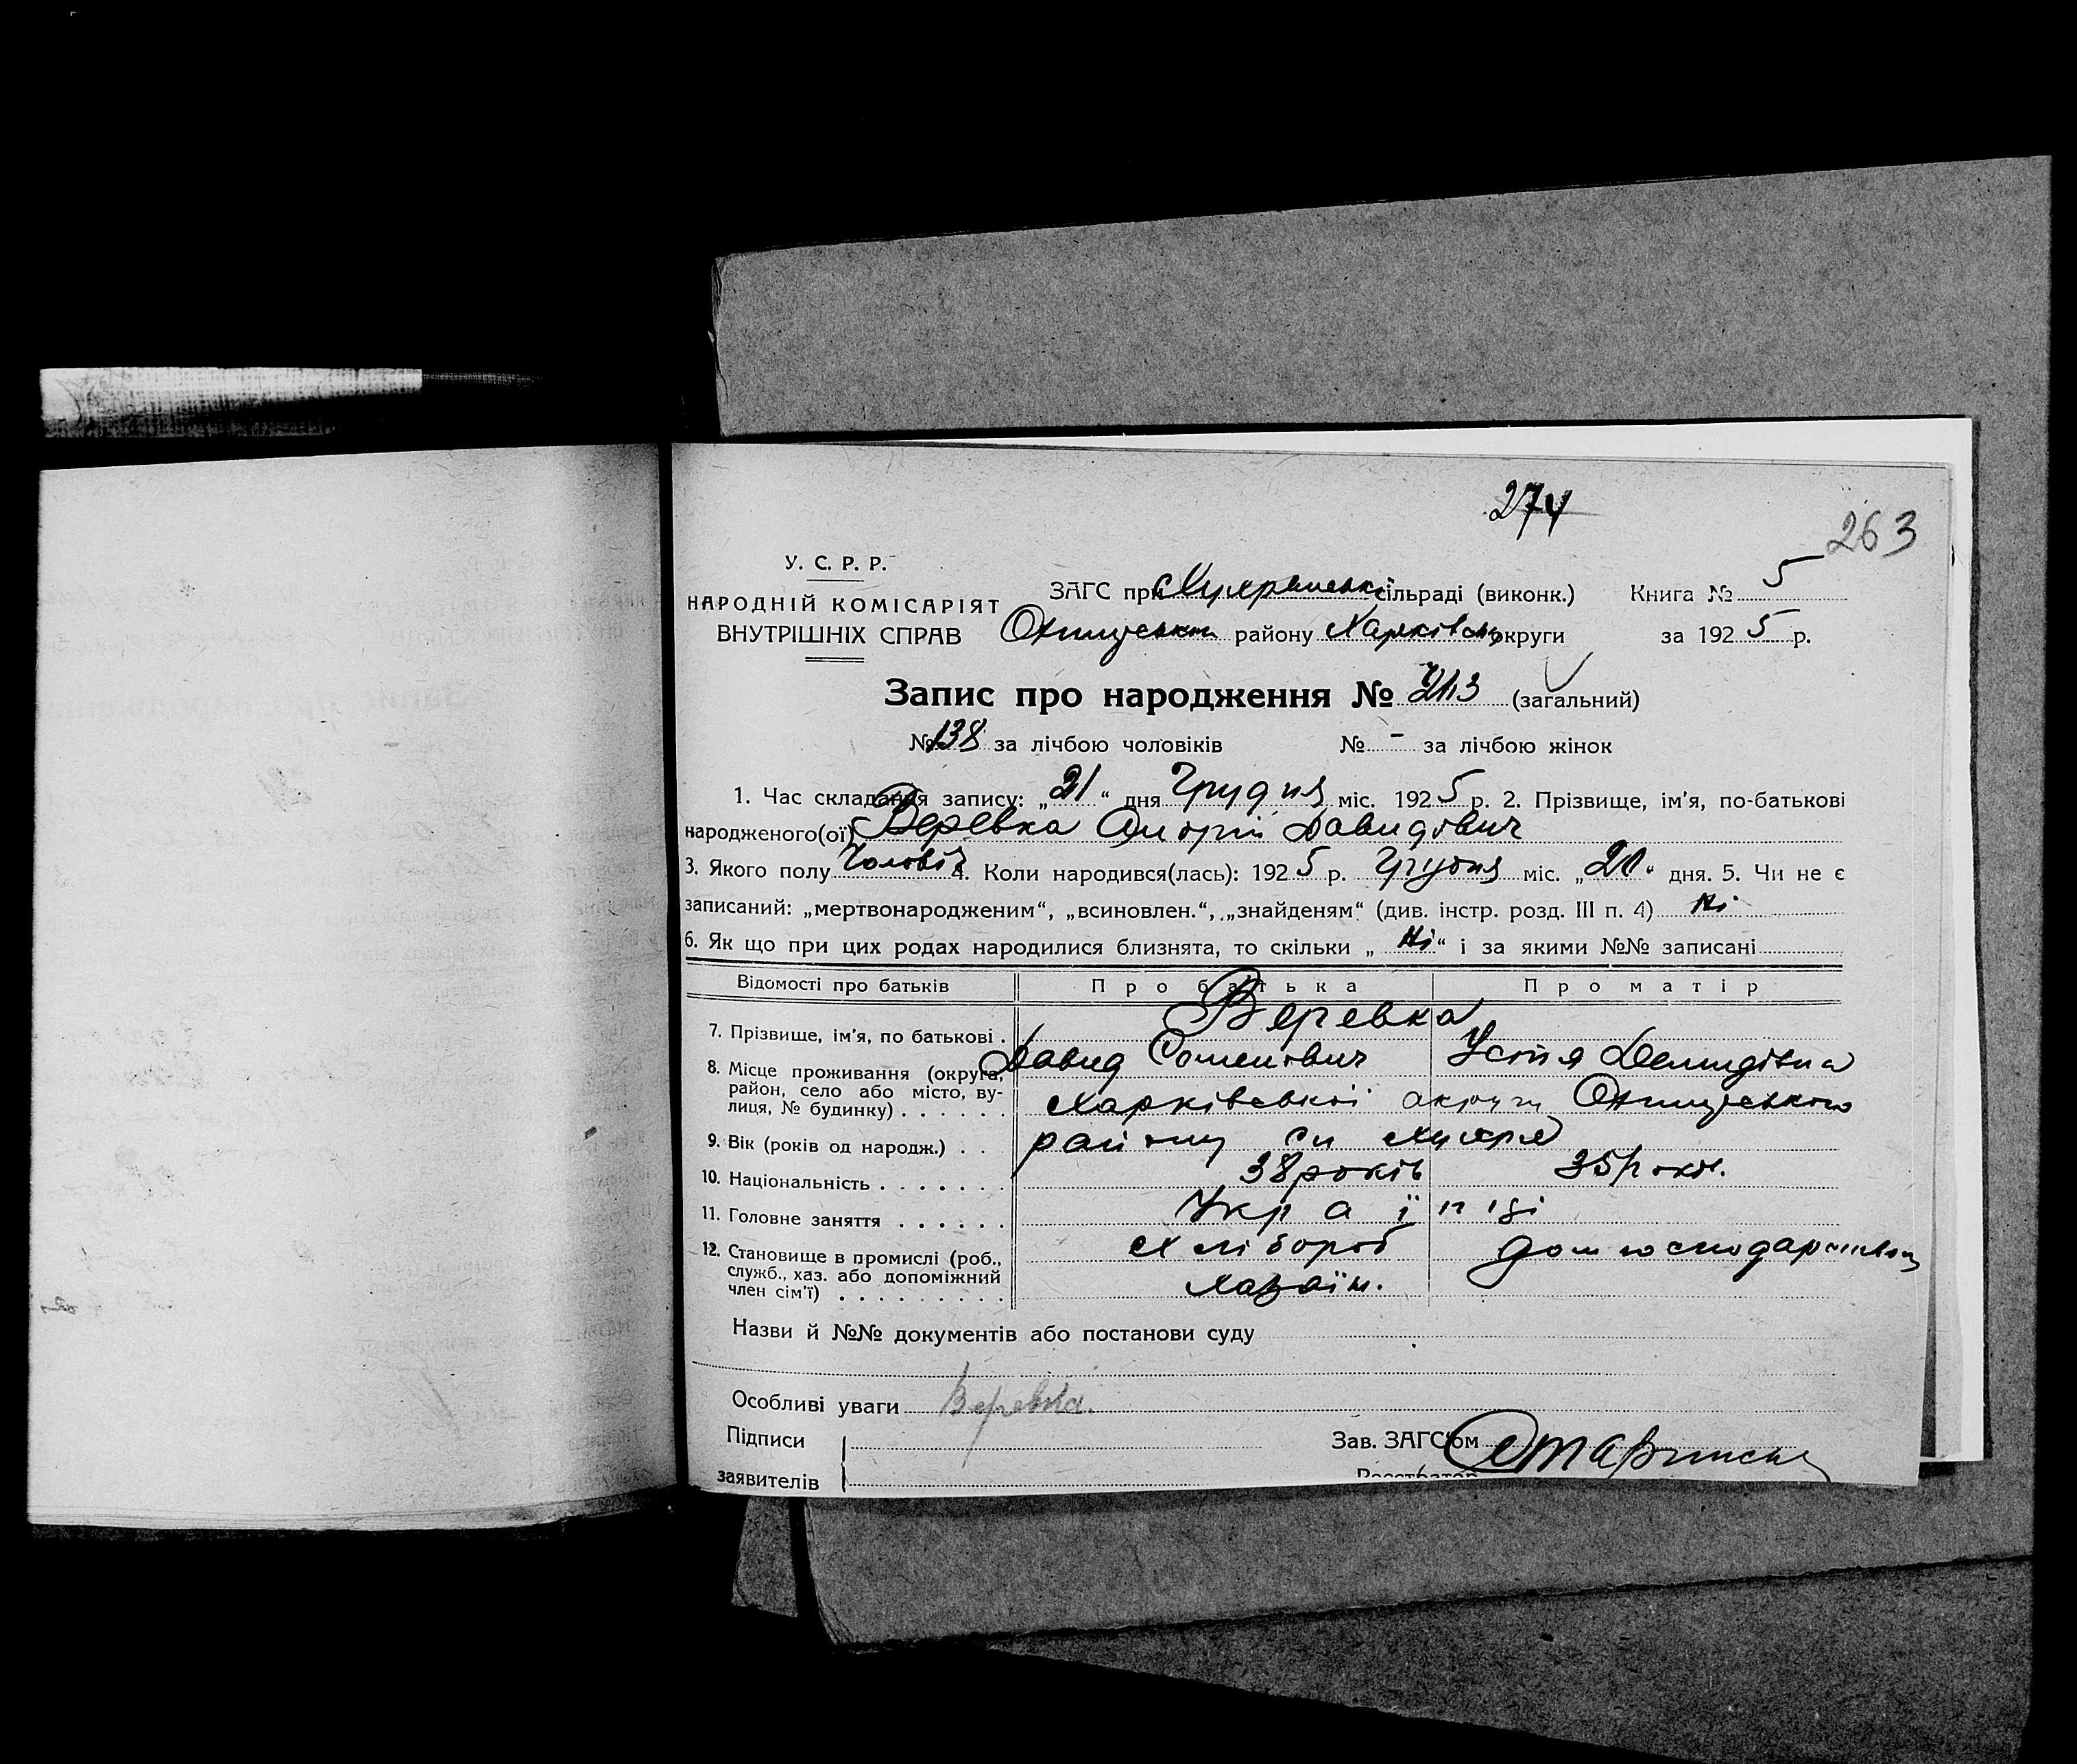 274
263
У. С. Р. Р.
НАРОДНІЙ КОМІСАРІЯТ
ВНУТРІШНІХ СПРАВ
ЗАГС при сільраді (виконк.) Книга № 5
району Харківськ округи за 1925 р.
Запис про народження № (загальний)
№ 138 за лічбою чоловіків № - за лічбою жінок
1. Час складання запису: „21“ дня Грудня міс. 1925 р. 2. Прізвище, ім'я, по-батькові
народженого(ої) Веревка Андрій Давидович
3. Якого полу Чоловіч 4. Коли народився(лась): 1925 р. Грудня міс. „20“ дня. 5. Чи не є
записаний: „мертвонародженим“, „всиновлен.“, „знайденям“ (див. інстр. розд. III п. 4) Ні
6. Як що при цих родах народилися близнята, то скільки „Ні“ і за якими №№ записані
Відомості про батьків Про батька Про матір
7. Прізвище, ім'я, по батькові . Веревка
Давид Семенович Устя Демидівна
8. Місце проживання (округа, район, село або місто, вулиця, № будинку) . . . . . . Харківської округи
9. Вік (років од народж.) . . . району
10. Національність . . . . . . . 38 років 35 рокі.
11. Головне заняття . . . . . . Українці
12. Становище в промислі (роб., служб., хаз. або допоміжний член сім'ї) . . . . . . . . . Хлібороб
Хазаїн.
Назви й №№ документів або постанови суду
Особливі уваги Веревка.
Підписи
заявителів
Зав. ЗАГС'ом
Реєстратор